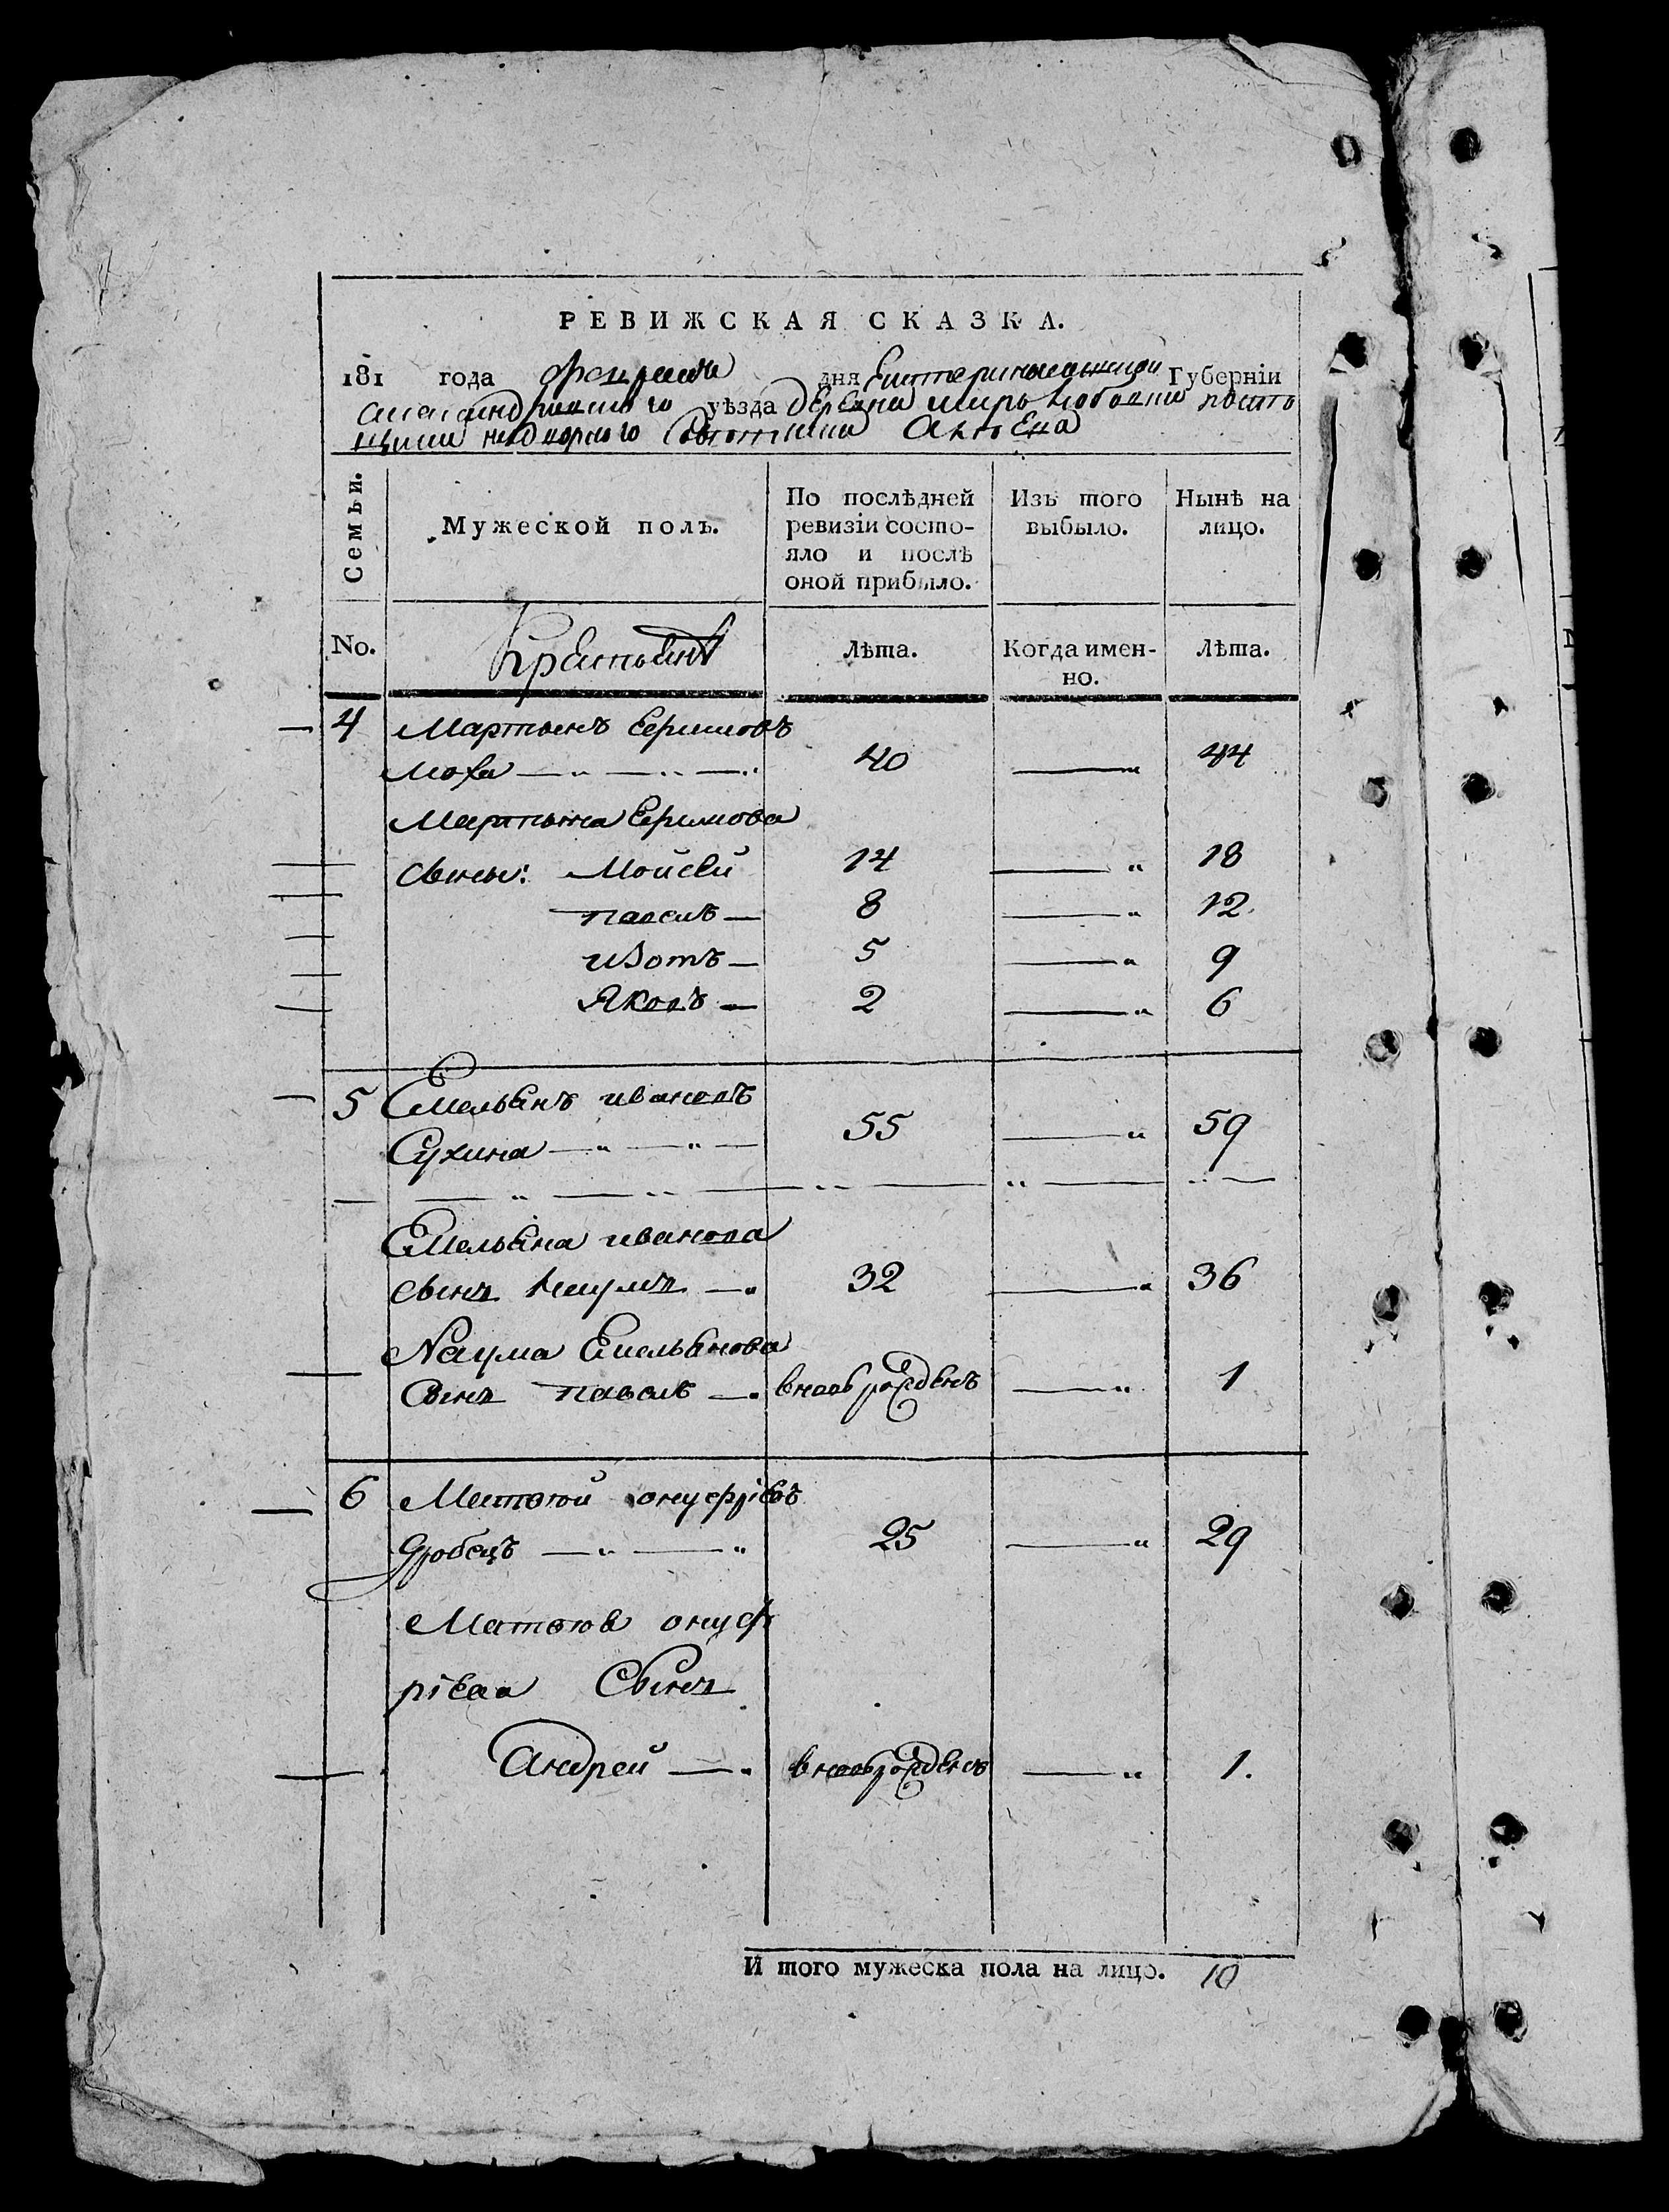 РЕВИЖСКАЯ СКАЗКА.
181 года февраля дня Екатеринославской Губерніи
Александровского уѣзда деревни
надворного Советника
Семьи.
Мужеской полъ.
По послѣдней ревизіи состояло и послѣ оной прибыло.
Изъ того выбыло.
Нынѣ на лицо.
No.
Крестьянъ
Лѣта.
Когда именно.
Лѣта.
4 Мартынъ Ефимовъ
Моха 40 44
Мартына Ефимова
сыны: Мойсей 14 18
павелъ 8 12
изотъ 5 9
Яковъ 2 6
5 Емельянъ ивановъ
Сухина 55 59
Емельяна иванова
сынъ Наумъ 32 36
Наума Емельянова
Сынъ павелъ вновьрожденъ 1
6 Матвей онуфріевъ
25 29
онуф
ріева Сынъ
Андрей вновьрожденъ 1.
И того мужеска пола на лицо. 10